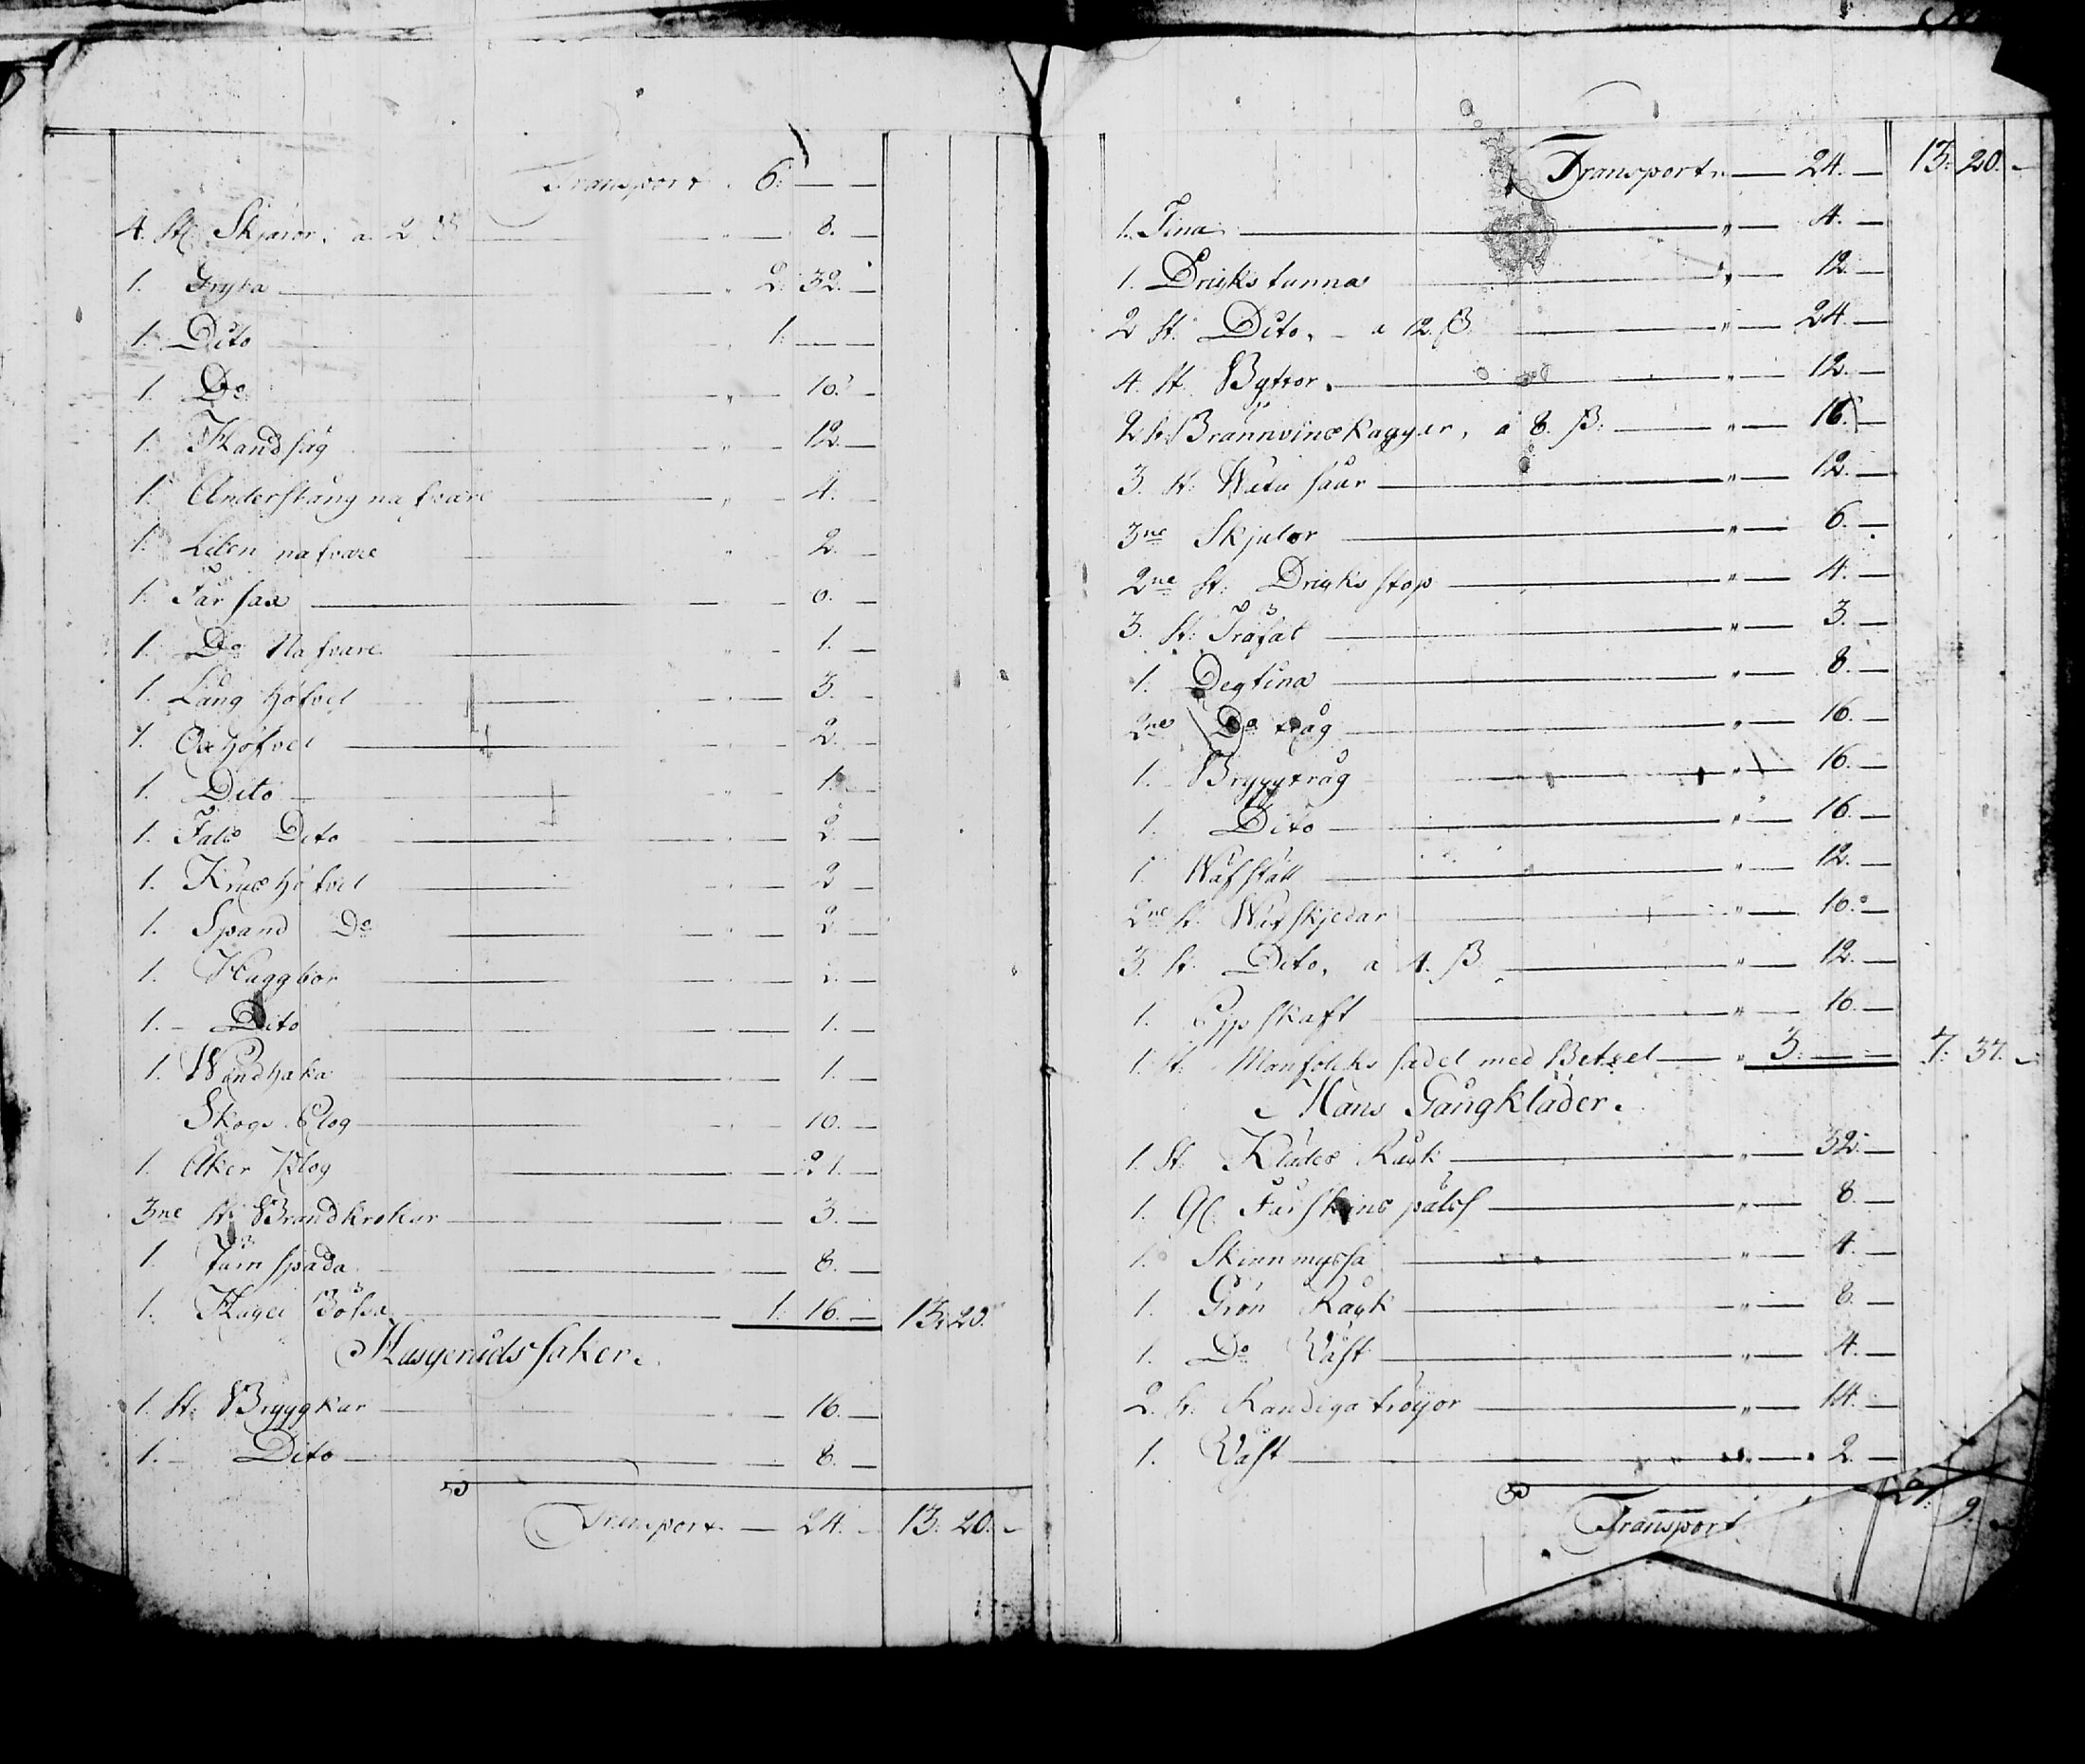 Transport . 6: — —
4. St. Skjäror, a. 2 ß — 8. —
1. Gryta — 2: 32. —
1. Dito — 1: — —
1. Do — 16. —
1. Handsåg — 12. —
1. Understång nafvare — 4. —
1. Liten nafvare — 2. —
1. Får sax — 6. —
1. Do Nafvare — 1. —
1. Lång höfvel — 3. —
1. Ox höfvel — 2. —
1. Dito — 1. —
1. Fals Dito — 2. —
1. Krus höfvel — 2 —
1. Spånd Do — 2. —
1. Huggbor — —
1. Dito — 1. —
1. Wändhaka — 1. —
Skogs Plog — 10. —
1. Åker Plog — 21. —
3ne St. Brandkrokar — 3. —
1. Järnspada — 8. —
1. Hagel Bössa — 1: 16. — 13: 20.
Husgerådssaker.
1. St: Bryggkar — 16. —
1. Dito — 8. —
Transport — 24. — 13: 20. —
Transport — 24. — 13: 20. —
1. Tina — " — 4. —
1. Drickstunna — " — 12. —
2 St. Dito, a 12. ß — " — 24. —
4. St. Byttor. — " — 12. —
2 St. Brännvinskaggar, a 8. ß. — " — 16. —
3. St. Watu såar — " — 12. —
3ne Skjulor — " — 6. —
2ne St: Dricksstop — " — 4. —
3. St: Träfat — " — 3. —
1. Degtina — " — 8. —
2ne Do tråg — " — 16. —
1. Bryggtråg — " — 16. —
1. Dito — " — 16. —
1. Wäfställ — " — 12. —
2ne St. Wäfskjedar — " — 16. —
3. St. Dito, a 4. ß — " — 12. —
1. Uppskaft — " — 16. —
1. St. Manfolcks sadel med Betsel — " 3: — — 7: 37. —
Mans Gångkläder.
1. St: Klädes Råck — " — 32. —
1. Gl. Fårskins päls — " — 8. —
1. Skinnmyssa — " — 4. —
1. Grön Råck — " — 8. —
1. Do Väst — " — 4. —
2. St: Randiga tröyor — " — 14. —
1. Väst — " — 2. —
Transport 21: 9. —